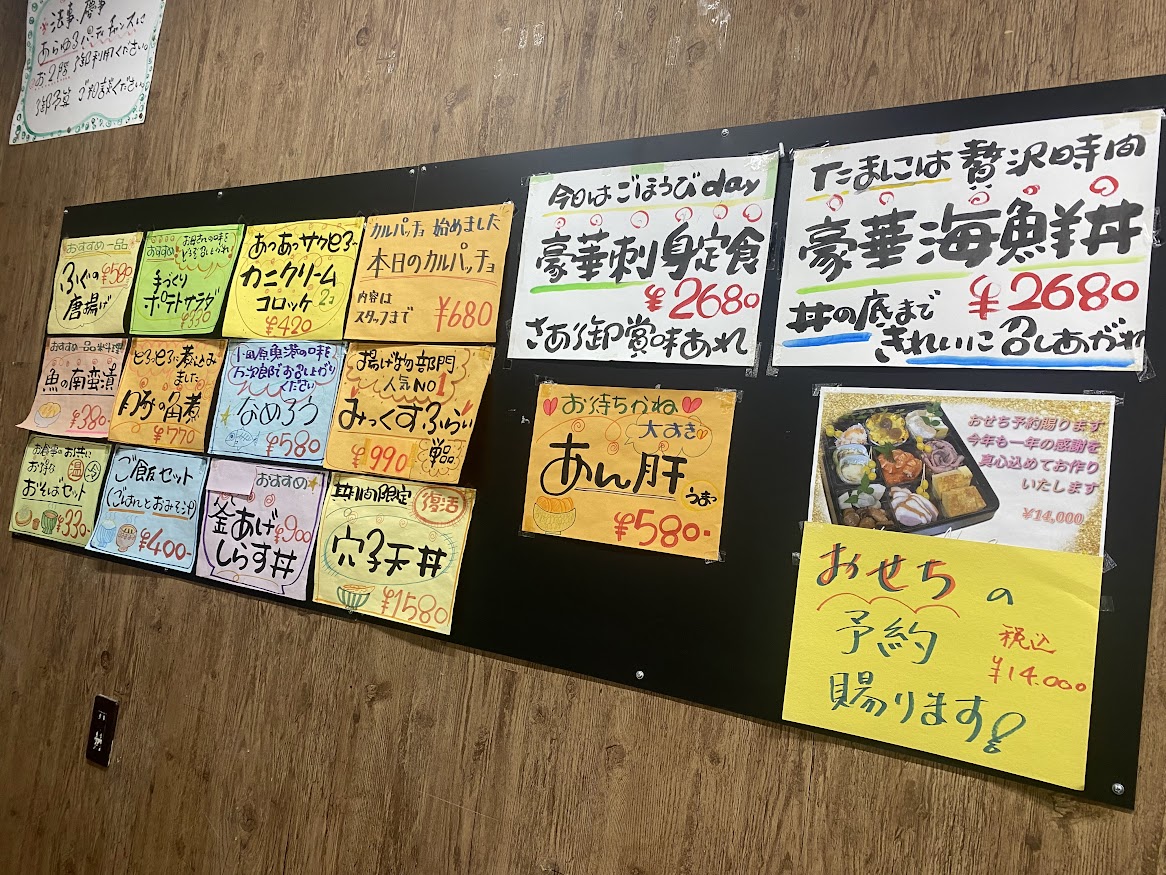 法事、慶事
あらゆるパーティーチャンスに
お2階御利用ください。
御予算ご相談ください。
おすすめ一品
ふぐの
唐揚げ
¥580
おすすめ
手づくり
ポテトサラダ
¥330
あつあつサクとろ〜
カニクリーム
コロッケ 2コ
¥420
カルパッチョ 始めました
本日のカルパッチョ
内容は
スタッフまで
¥680
おすすめ一品料理
魚の南蛮漬
¥380-
とろっとろに煮こみ
ました
豚の角煮
¥770
小田原魚港の味を
万次郎でお召し上がり
ください
なめろう
¥580
揚げ物部門
人気NO1
みっくすふらい
¥990
単品
お食事のお供に
お得な 温 冷
おそばセット
¥330-
ご飯セット
(ごはんとおみそ汁)
¥400-
おすすめ
釜あげ
しらす丼
¥900
期間限定
復活
穴子天丼
¥1580
今日はごほうびday
豪華刺身定食
¥2680
さあ御賞味あれ
たまには贅沢時間
豪華海鮮丼
¥2680
丼の底まで
きれいに召しあがれ
お待ちかね
大すき
あん肝
うまっ
¥580-
おせち予約賜ります
今年も一年の感謝を
真心込めてお作り
いたします
¥14,000
おせちの
予約
税込
¥14.000
賜ります!